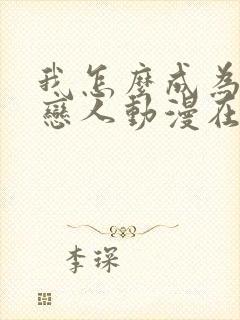 我怎麼成為
戀人動漫在
李琛